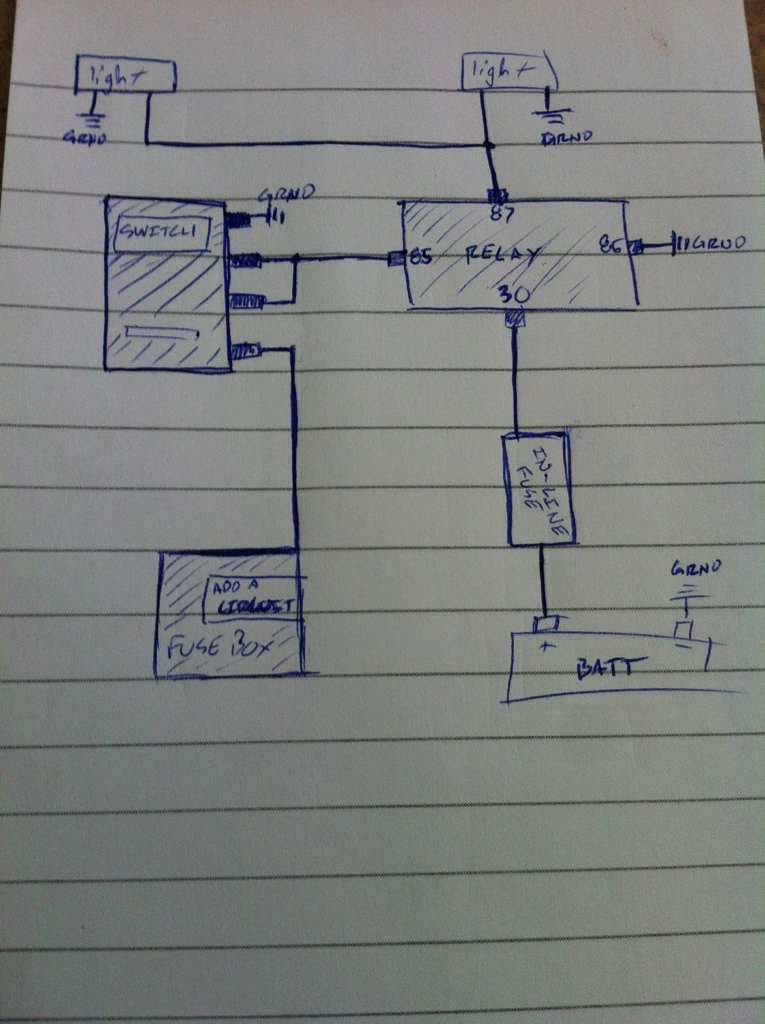 light
light
GRND
GRND
GRND
SWITCH
87
85
RELAY
86
GRND
30
IN-LINE
FUSE
GRND
ADD A
CIRCUIT
FUSE BOX
+
-
BATT